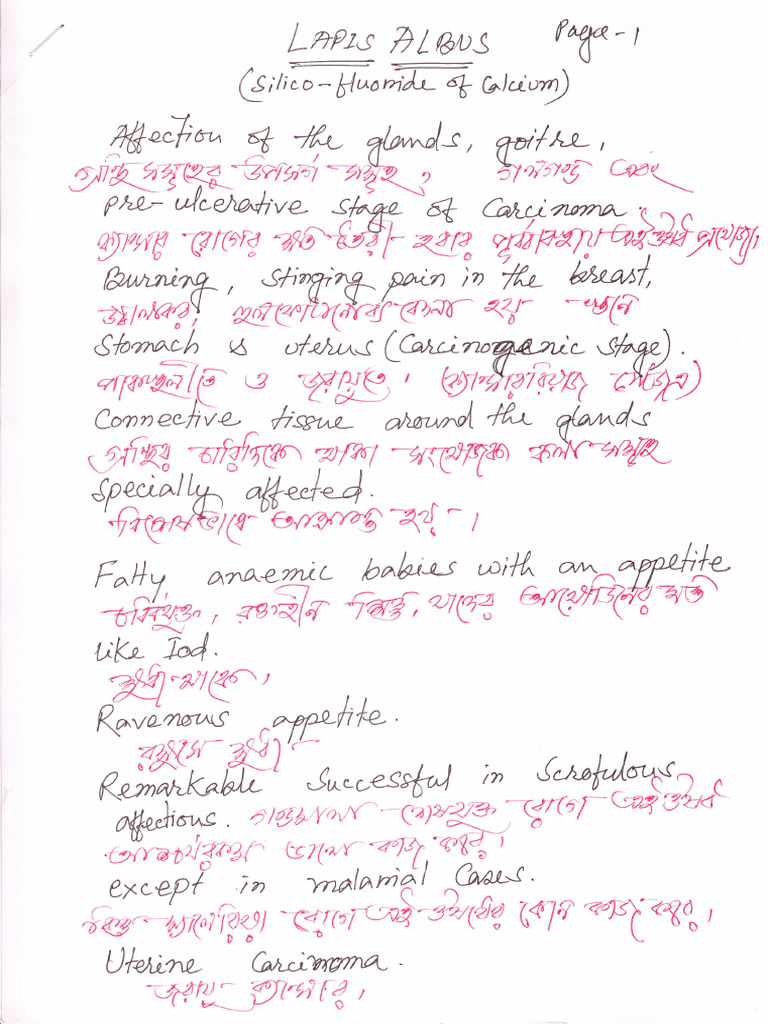 LAPIS ALBUS Page-1
(Silico-fluoride of Calcium)
Affection of the glands, goitre,
গ্রন্থি সমূহের উপসর্গ সমূহ, গলগণ্ড এবং
pre-ulcerative stage of Carcinoma.
ক্যান্সার রোগের ক্ষত তৈরী হবার পূর্বাবস্থায় এই ঔষধ প্রযোজ্য।
Burning, stinging pain in the breast,
হুলফোটানো ব্যথা বেদনা হয় স্তনে
Stomach & uterus (Carcinogenic stage).
পাকস্থলীতে ও জরায়ুতে।
Connective tissue around the glands
গ্রন্থির চারিদিকে থাকা সংযোজক কলা সমূহ
specially affected.
বিশেষভাবে আক্রান্ত হয়।
Fatty anaemic babies with an appetite
চর্বিযুক্ত, রক্তহীন শিশু, যাদের আয়োডিনের মত
like Iod.
ক্ষুধা থাকে।
Ravenous appetite.
রাক্ষুসে ক্ষুধা
Remarkable Successful in Scrofulous
affectious. গণ্ডমালা দোষযুক্ত রোগে এই ঔষধ
আশ্চর্যরকম ভালো কাজ করে।
except in malarial Cases.
কিন্তু ম্যালেরিয়া রোগে এই ঔষধের কোন কাজ করে।
Uterine Carcinoma.
জরায়ু ক্যান্সার।